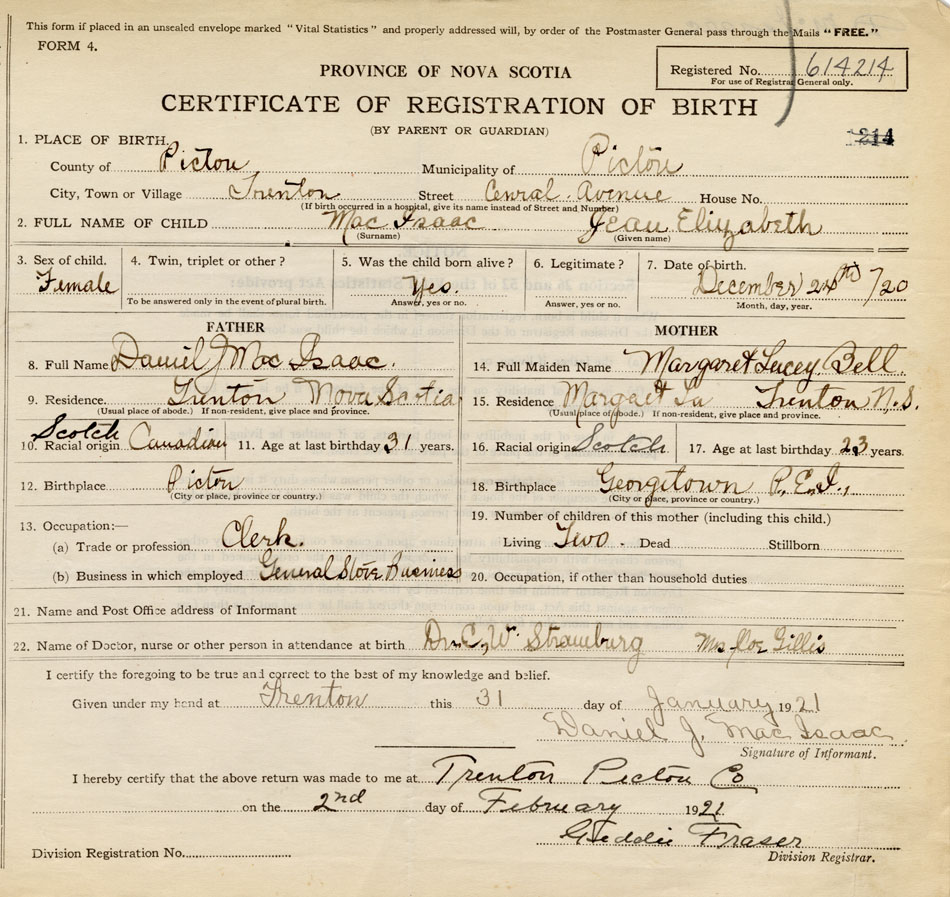 This form if placed in an unsealed envelope marked "Vital Statistics" and properly addressed will, by order of the Postmaster General pass through the Mails "FREE."
FORM 4.
PROVINCE OF NOVA SCOTIA
Registered No. 614214
For use of Registrar General only.
CERTIFICATE OF REGISTRATION OF BIRTH
(BY PARENT OR GUARDIAN)
214
1. PLACE OF BIRTH.
County of Pictou Municipality of Pictou
City, Town or Village Trenton Street Cenral Avenue House No.
(If birth occurred in a hospital, give its name instead of Street and Number)
2. FULL NAME OF CHILD Mac Isaac Jean Elizabeth
(Surname) (Given name)
3. Sex of child. 4. Twin, triplet or other? 5. Was the child born alive? 6. Legitimate? 7. Date of birth.
Female Yes. December 24th /20
To be answered only in the event of plural birth. Answer, yes or no. Answer, yes or no. Month, day, year.
FATHER MOTHER
8. Full Name Daniel J Mac Isaac. 14. Full Maiden Name Margaret Lucey Bell
9. Residence. Trenton Nova Scotia 15. Residence Trenton N.S.
(Usual place of abode.) If non-resident, give place and province. (Usual place of abode.) If non-resident, give place and province.
Scotch
10. Racial origin Canadian 11. Age at last birthday 31 years. 16. Racial origin Scotch 17. Age at last birthday 23 years.
12. Birthplace Pictou 18. Birthplace Georgetown P.E.I.,
(City or place, province or country.) (City or place, province or country.)
13. Occupation:— 19. Number of children of this mother (including this child.)
(a) Trade or profession. Clerk. Living Two - Dead Stillborn
(b) Business in which employed General Store Business 20. Occupation, if other than household duties
21. Name and Post Office address of Informant
22. Name of Doctor, nurse or other person in attendance at birth Dr. C. W. Mrs Joe Gillis
I certify the foregoing to be true and correct to the best of my knowledge and belief.
Given under my hend at Trenton this 31 day of January 1921
Daniel J. Mac Isaac
Signature of Informant.
I hereby certify that the above return was made to me at Trenton Pictou Co
on the 2nd day of February 1921
Geddie Fraser
Division Registration No. Division Registrar.